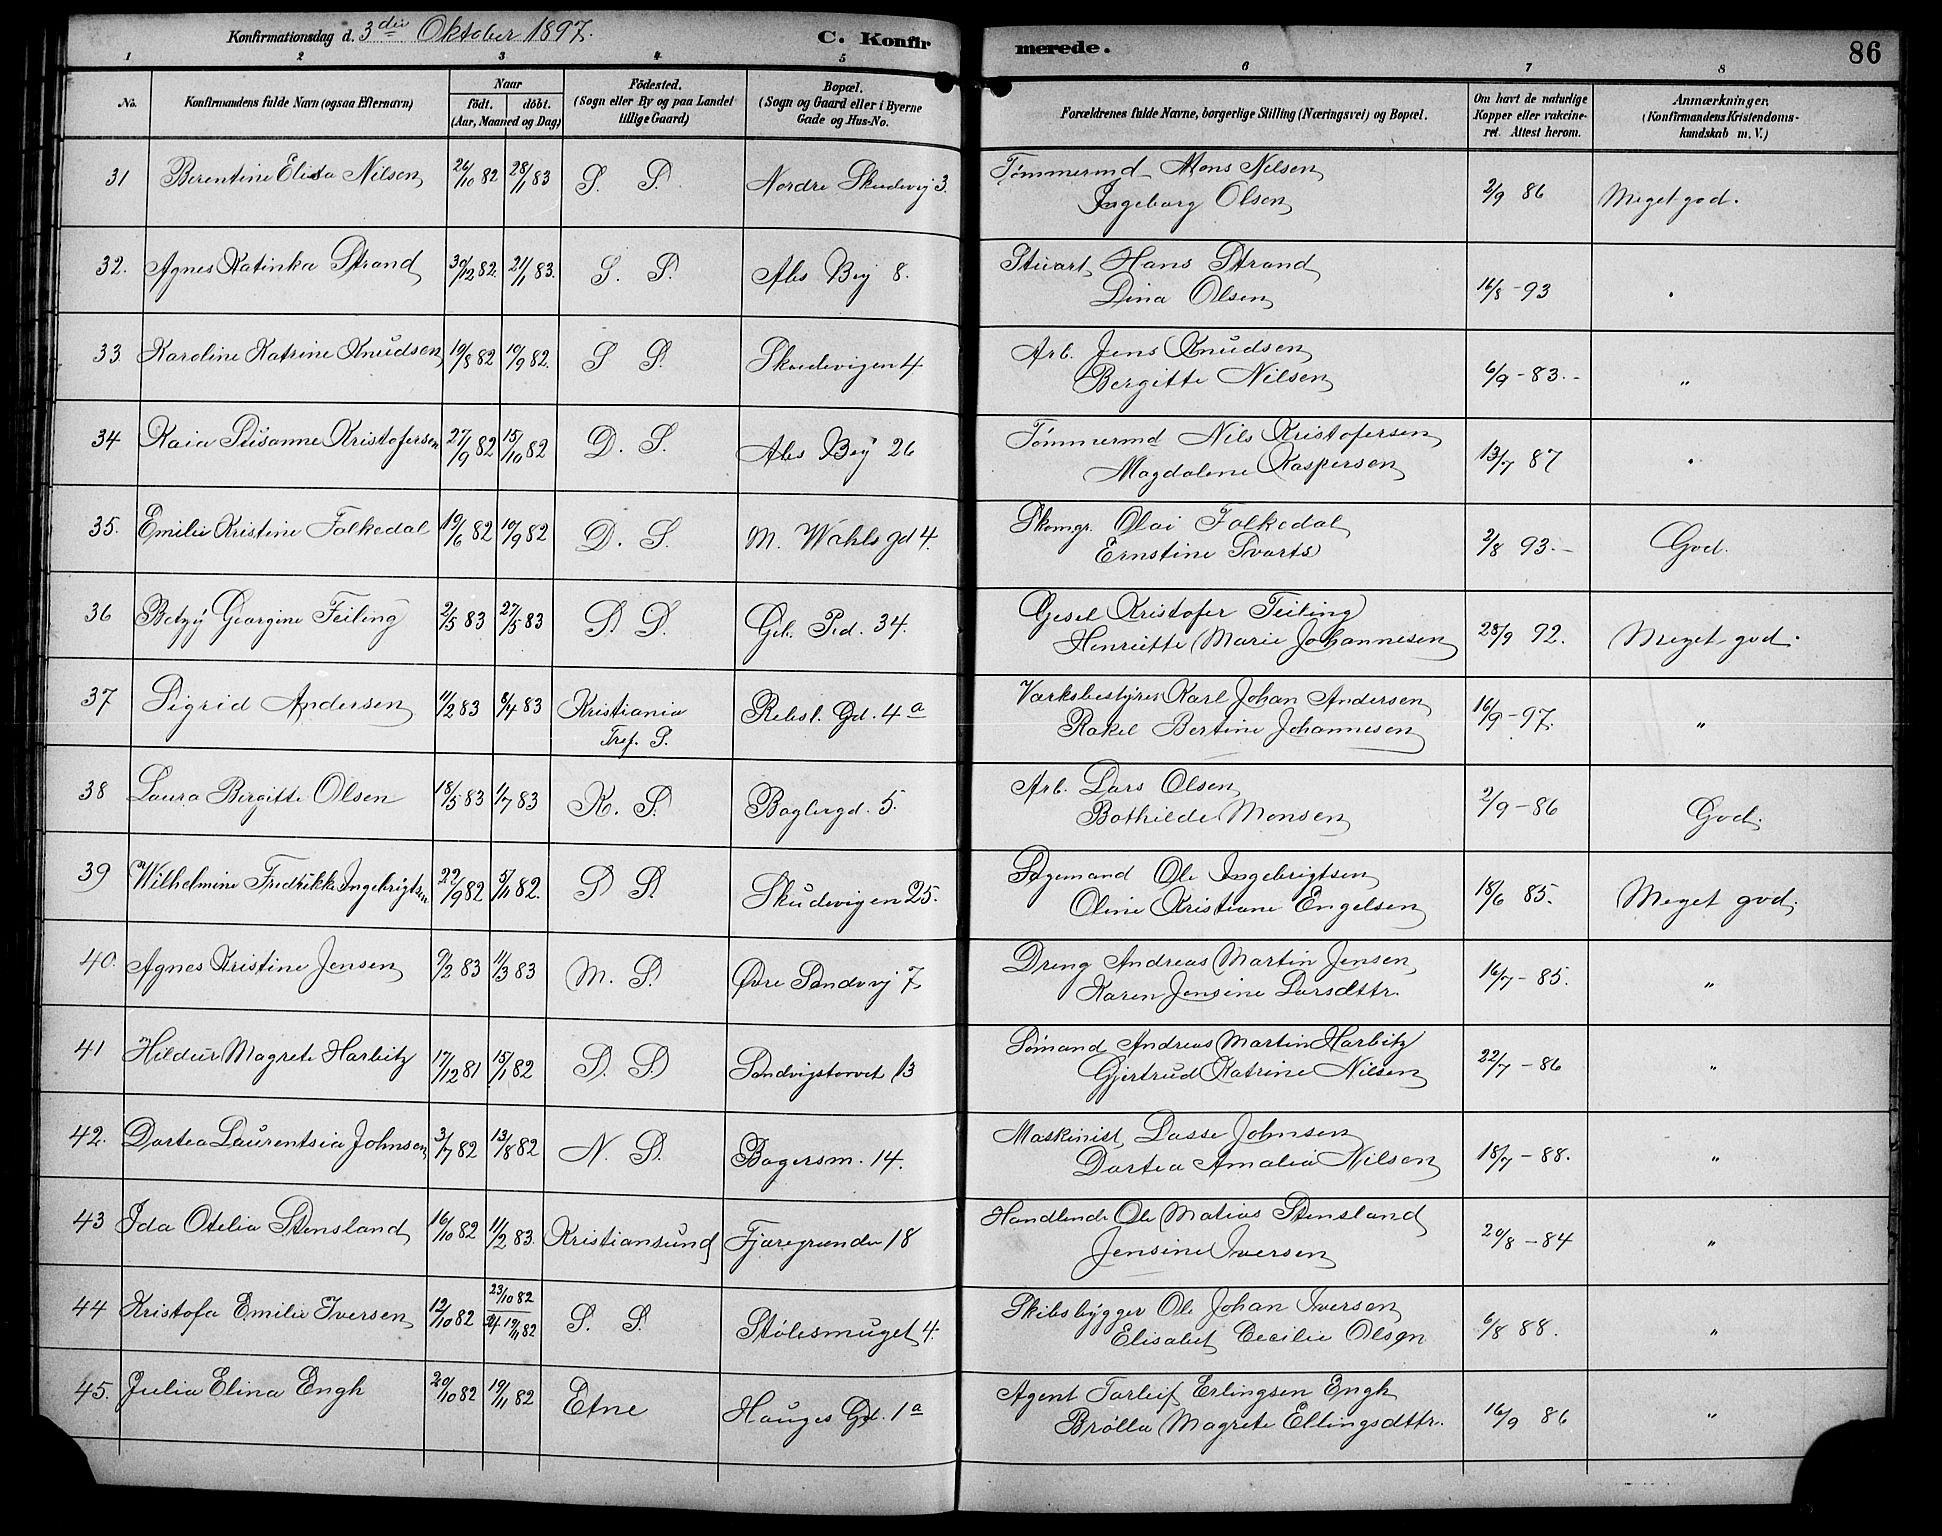 Konfirmationsdag d. 3die Oktober 1897. C. Konfirmerede. 86
1 2 3 4 5 6 7 8
No. Konfirmandens fulde Navn (ogsaa Efternavn) Naar födt. döbt. (Aar, Maaned og Dag) Födested. (Sogn eller By og paa Landet tillige Gaard) Bopæl. (Sogn og Gaard eller i Byerne Gade og Hus-No. Forældrenes fulde Navne, borgerlige Stilling (Næringsvei) og Bopæl. Om havt de naturlige Kopper eller vakcineret. Attest herom. Anmærkninger. (Konfirmandens Kristendomskundskab m. V.)
31 Berentine Elisa Nilsen 24/10 82 28/1 83 S. S. Nordre Skudevij 3. Tømmermd Mons Nilsen 2/9 86 Meget god.
Ingeborg Olsen
32. Agnes Katinka Strand 30/12 82. 21/1 83. S. S. Abs Bøy 8. Stuart Hans Strand 16/8 - 93 "
Dina Olsen
33 Karoline Katrine Knudsen 19/8 82 10/9 82. S S. Skudevigen 4 Arb. Jens Knudsen 6/9 - 83. - "
Bergitte Nilsen
34 Kaia Susanne Kristofersen 27/9 82 15/10 82 D. S. Abs Bøy 26 Tømmermd Nils Kristofersen 13/7 87 "
Magdalene Kaspersen
35. Emilie Kristine Folkedal 19/6 82 10/9 82 D. S. M. Wahls gd 4. Skomgr. Olai Folkedal 2/8 93. - God.
Ernstine Svarts
36 Betzy Georgine Feiling 2/5 83 27/5 83 S. S. Geb. Prd. 34. Gesel Kristofer Feiling 28/9 92. Meget god.
Henriette Marie Johannesen
37 Sigrid Andersen 11/2 83 8/4 83 Kristiania Rebsl. Gd. 4a Værksbestyrer Karl Johan Andersen 16/9 - 97. "
Tref. S. Rakel Bertine Johannesen
38 Laura Bergitte Olsen 18/5 83 1/7 83 K. S. Baglergd. 5. Arb. Lars Olsen 2/9 - 86 God.
Bothilde Monsen
39 Wilhelmine Fredrikke Ingebrigtsen 22/9 82 5/11 82. S S. Skudevigen 25. Sagemand Ole Ingebrigtsen 18/6 85. Meget god.
Oline Kristiane Engelsen
40. Agnes Kristine Jensen 9/2 83 11/3 83 M. S. Øvre Sandvij 7 Dreng Andreas Martin Jensen 16/7 - 85. "
Karen Jensine Larsdttr.
41 Hildur Magrete Harbitz 17/12 81 15/1 82 S. S Sandvigstorvet 13 Sømand Andreas Martin Harbitz 22/7 - 86 "
Gjertrud Katrine Nilsen
42. Dortea Laurentsia Johnsen 3/7 82 13/8 82 N. S. Bagersm. 14. Maskinist Lasse Johnsen 18/7 - 88. "
Dortea Amalia Nilsen
43 Ida Otelia Stensland 16/10 82 11/2 83. Kristiansund Fjæregrændn 18 Handlende Ole Matias Stensland 20/8 - 84 "
Jensine Iversen
44 Kristofa Emilie Iversen 12/10 82 23/10 82 S. S. Stølesmuget 4. Skibsbygger Ole Johan Iversen 6/8 88. "
19/11 82 Elisabet Cecilie Olsen
45. Julia Elina Engh 20/10 82 19/11 82 Etne Hauges Gd. 1a Agent Torleif Erlingsen Engh 16/9 86 "
Brølla Magrete Ellingsdttr.